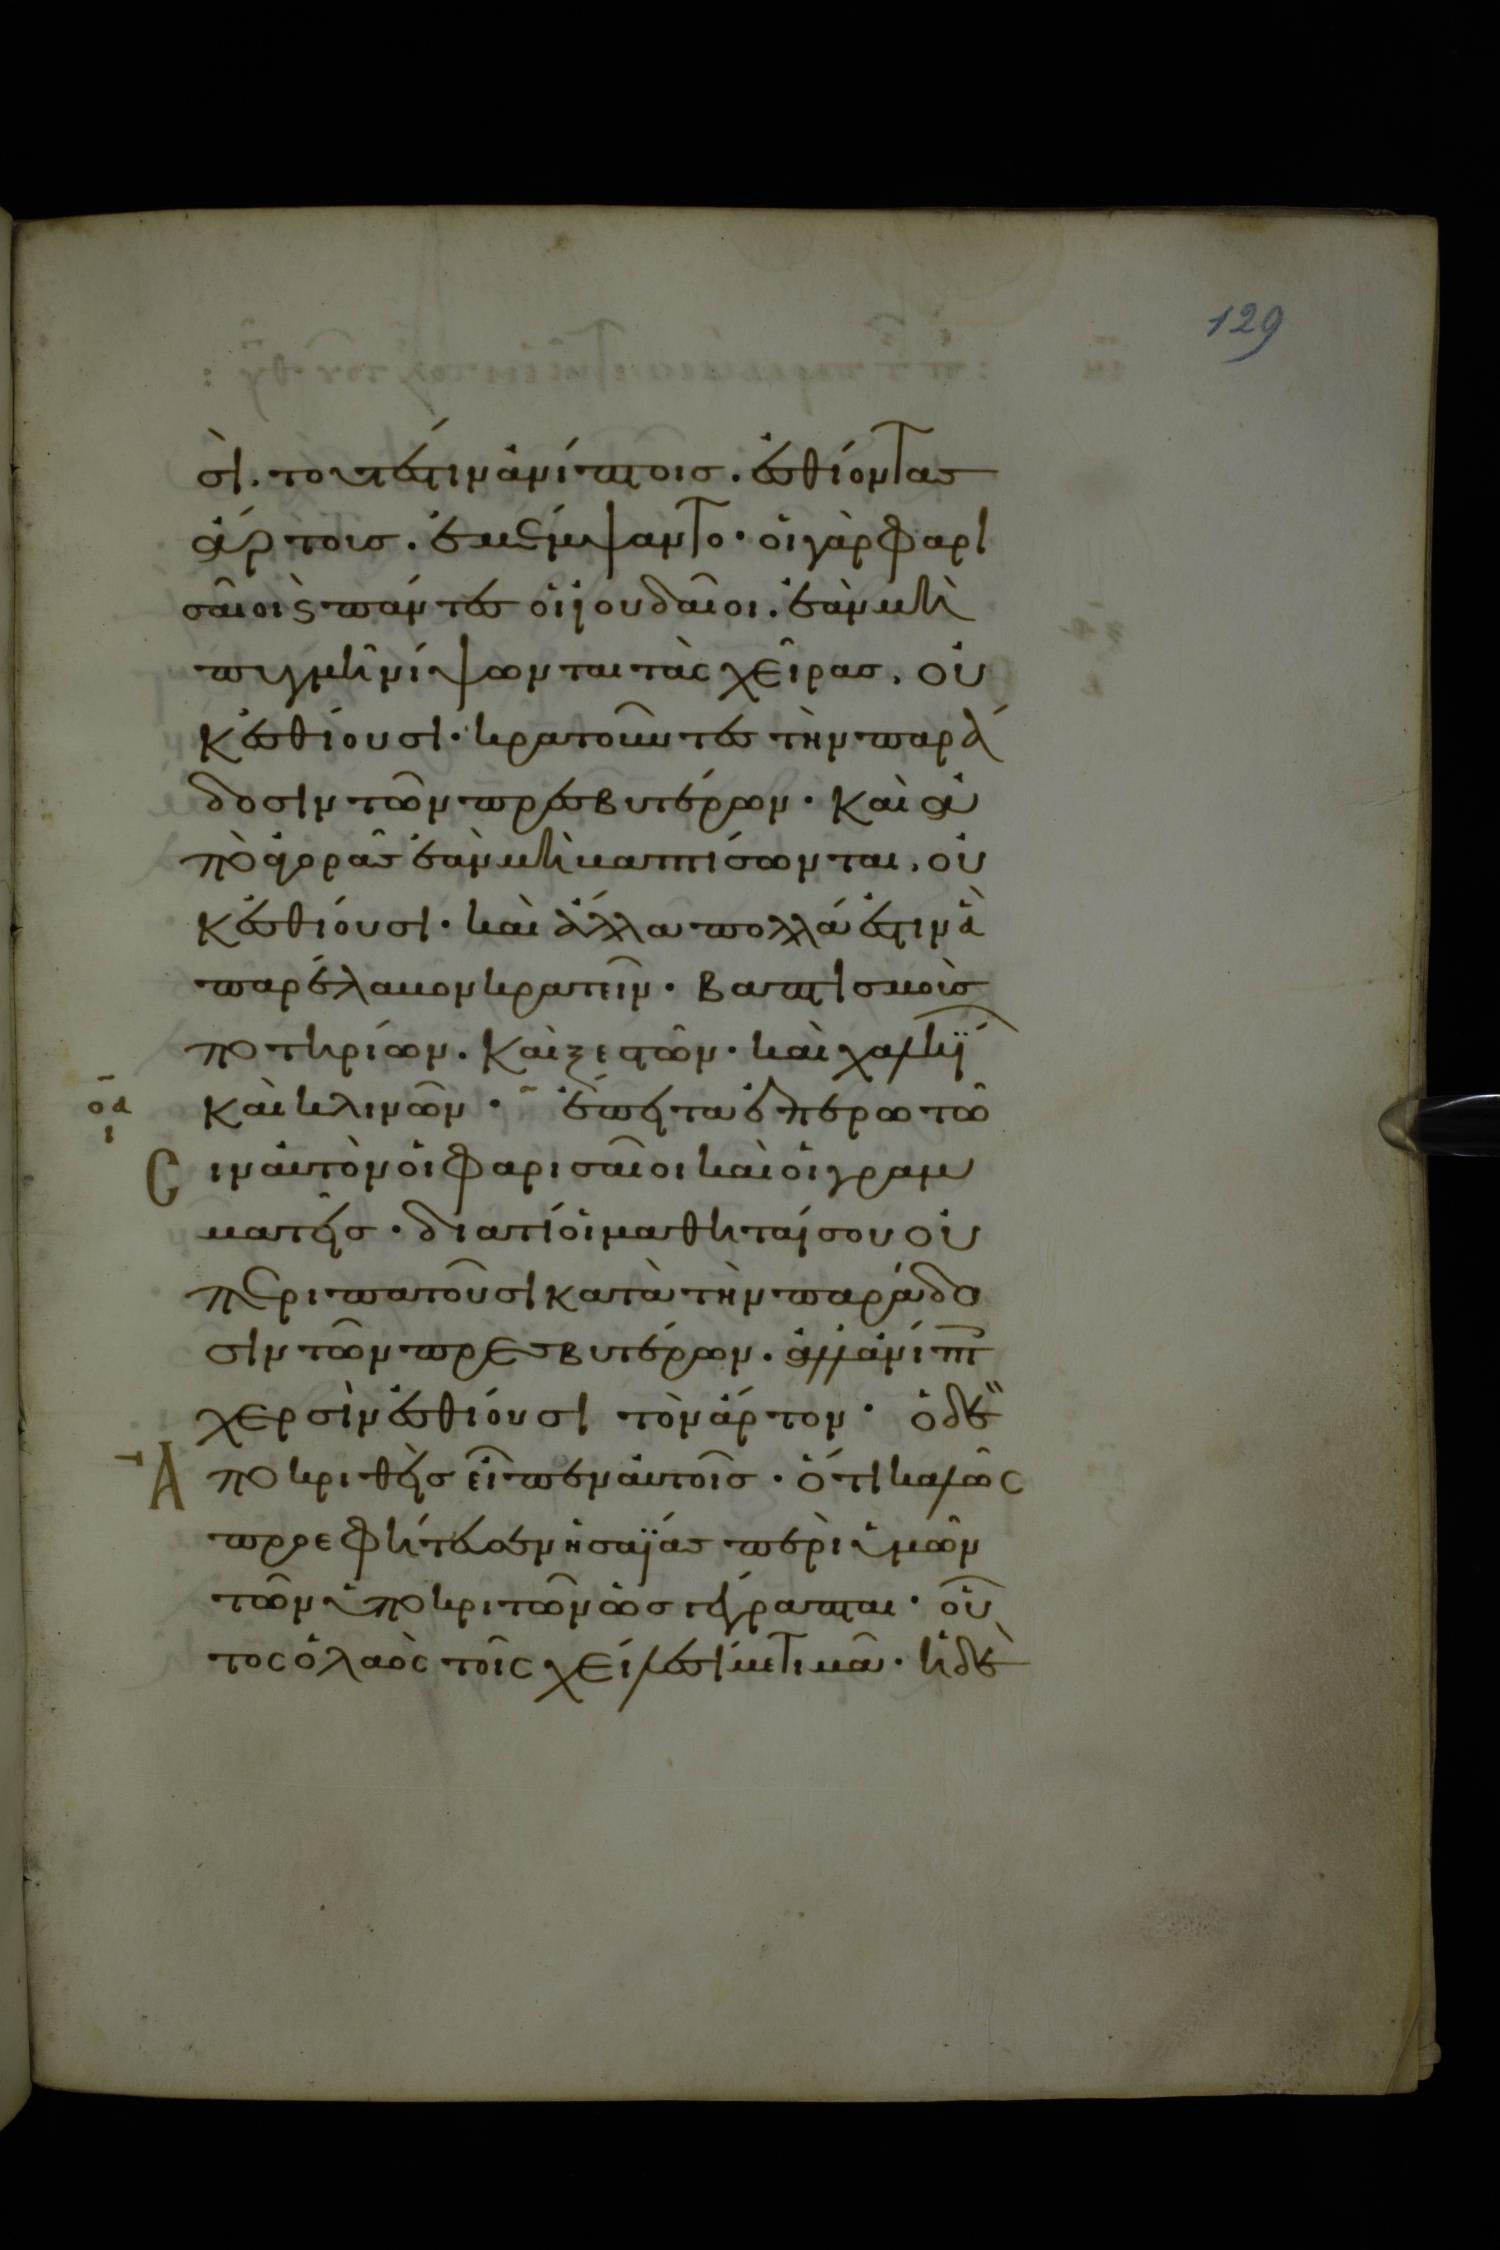 129
σὶ. τουτέστιν ἀνίπτοις. ἐσθίοντας
ἄρτοις. ἐμέμψαντο· οἱ γὰρ φαρι
σαῖοι ϗ πάντες οἱ ἰουδαῖοι. ἐὰν μὴ
πυγμῆ νίψωνται τὰς χεῖρας, οὐ
κἐσθίουσι· κρατοῦντες τὴν παρά
δοσιν τῶν πρεσβυτέρων· καὶ ἀ
πὸ ἀγορᾶς ἐὰν μὴ βαπτίσωνται, οὐ
κἐσθίουσι· καὶ ἄλλα πολλά ἐστιν ἃ
παρέλαβον κρατεῖν· βαπτισμοὺς
ποτηρίων. καὶ ξεστῶν· καὶ χαλκί
καὶ κλινῶν· ἔπειτα ἐπερωτῶ
οα
ι
σιν αὐτὸν οἱ φαρισαῖοι καὶ οἱ γραμ
ματεῖς· διατί οἱ μαθηταί σου οὐ
περιπατοῦσι κατὰ τὴν παράδο
σιν τῶν πρεσβυτέρων. ἀλλὰ ἀνίπτ
χερσὶν ἐσθίουσι τὸν ἄρτον· ὁ δὲ
Ἀποκριθεὶς εἶπεν αὐτοῖς· ὅτι καλῶς
προεφήτευσεν ἡσαΐας περὶ ὑμῶν
τῶν ὑποκριτῶν ὡς γέγραπται· οὗ
τος ὁ λαὸς τοῖς χείλεσί με τιμᾶ· ἡ δὲ